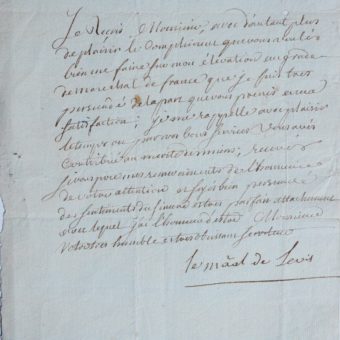 Je Reçois, Monsieur, avec d'autant plus
de plaisir le compliment que vous avés
bien me faire sur mon élévation au grade
de marechal de france que je suis tres
persuadé de la part que vous prenés a ma
satisfaction; je me rappelle avec plaisir
le temps ou par vos bons services vous avés
contribué au succès des miens; recevés
je vous prie mes remerciments de l'honneur
de votre attention et soyés bien persuadé
des sentiments du sincere et tres parfait attachement
avec lequel j'ai l'honneur d'etre Monsieur
Votre tres humble et tres obeissant serviteur
le maal de Levis